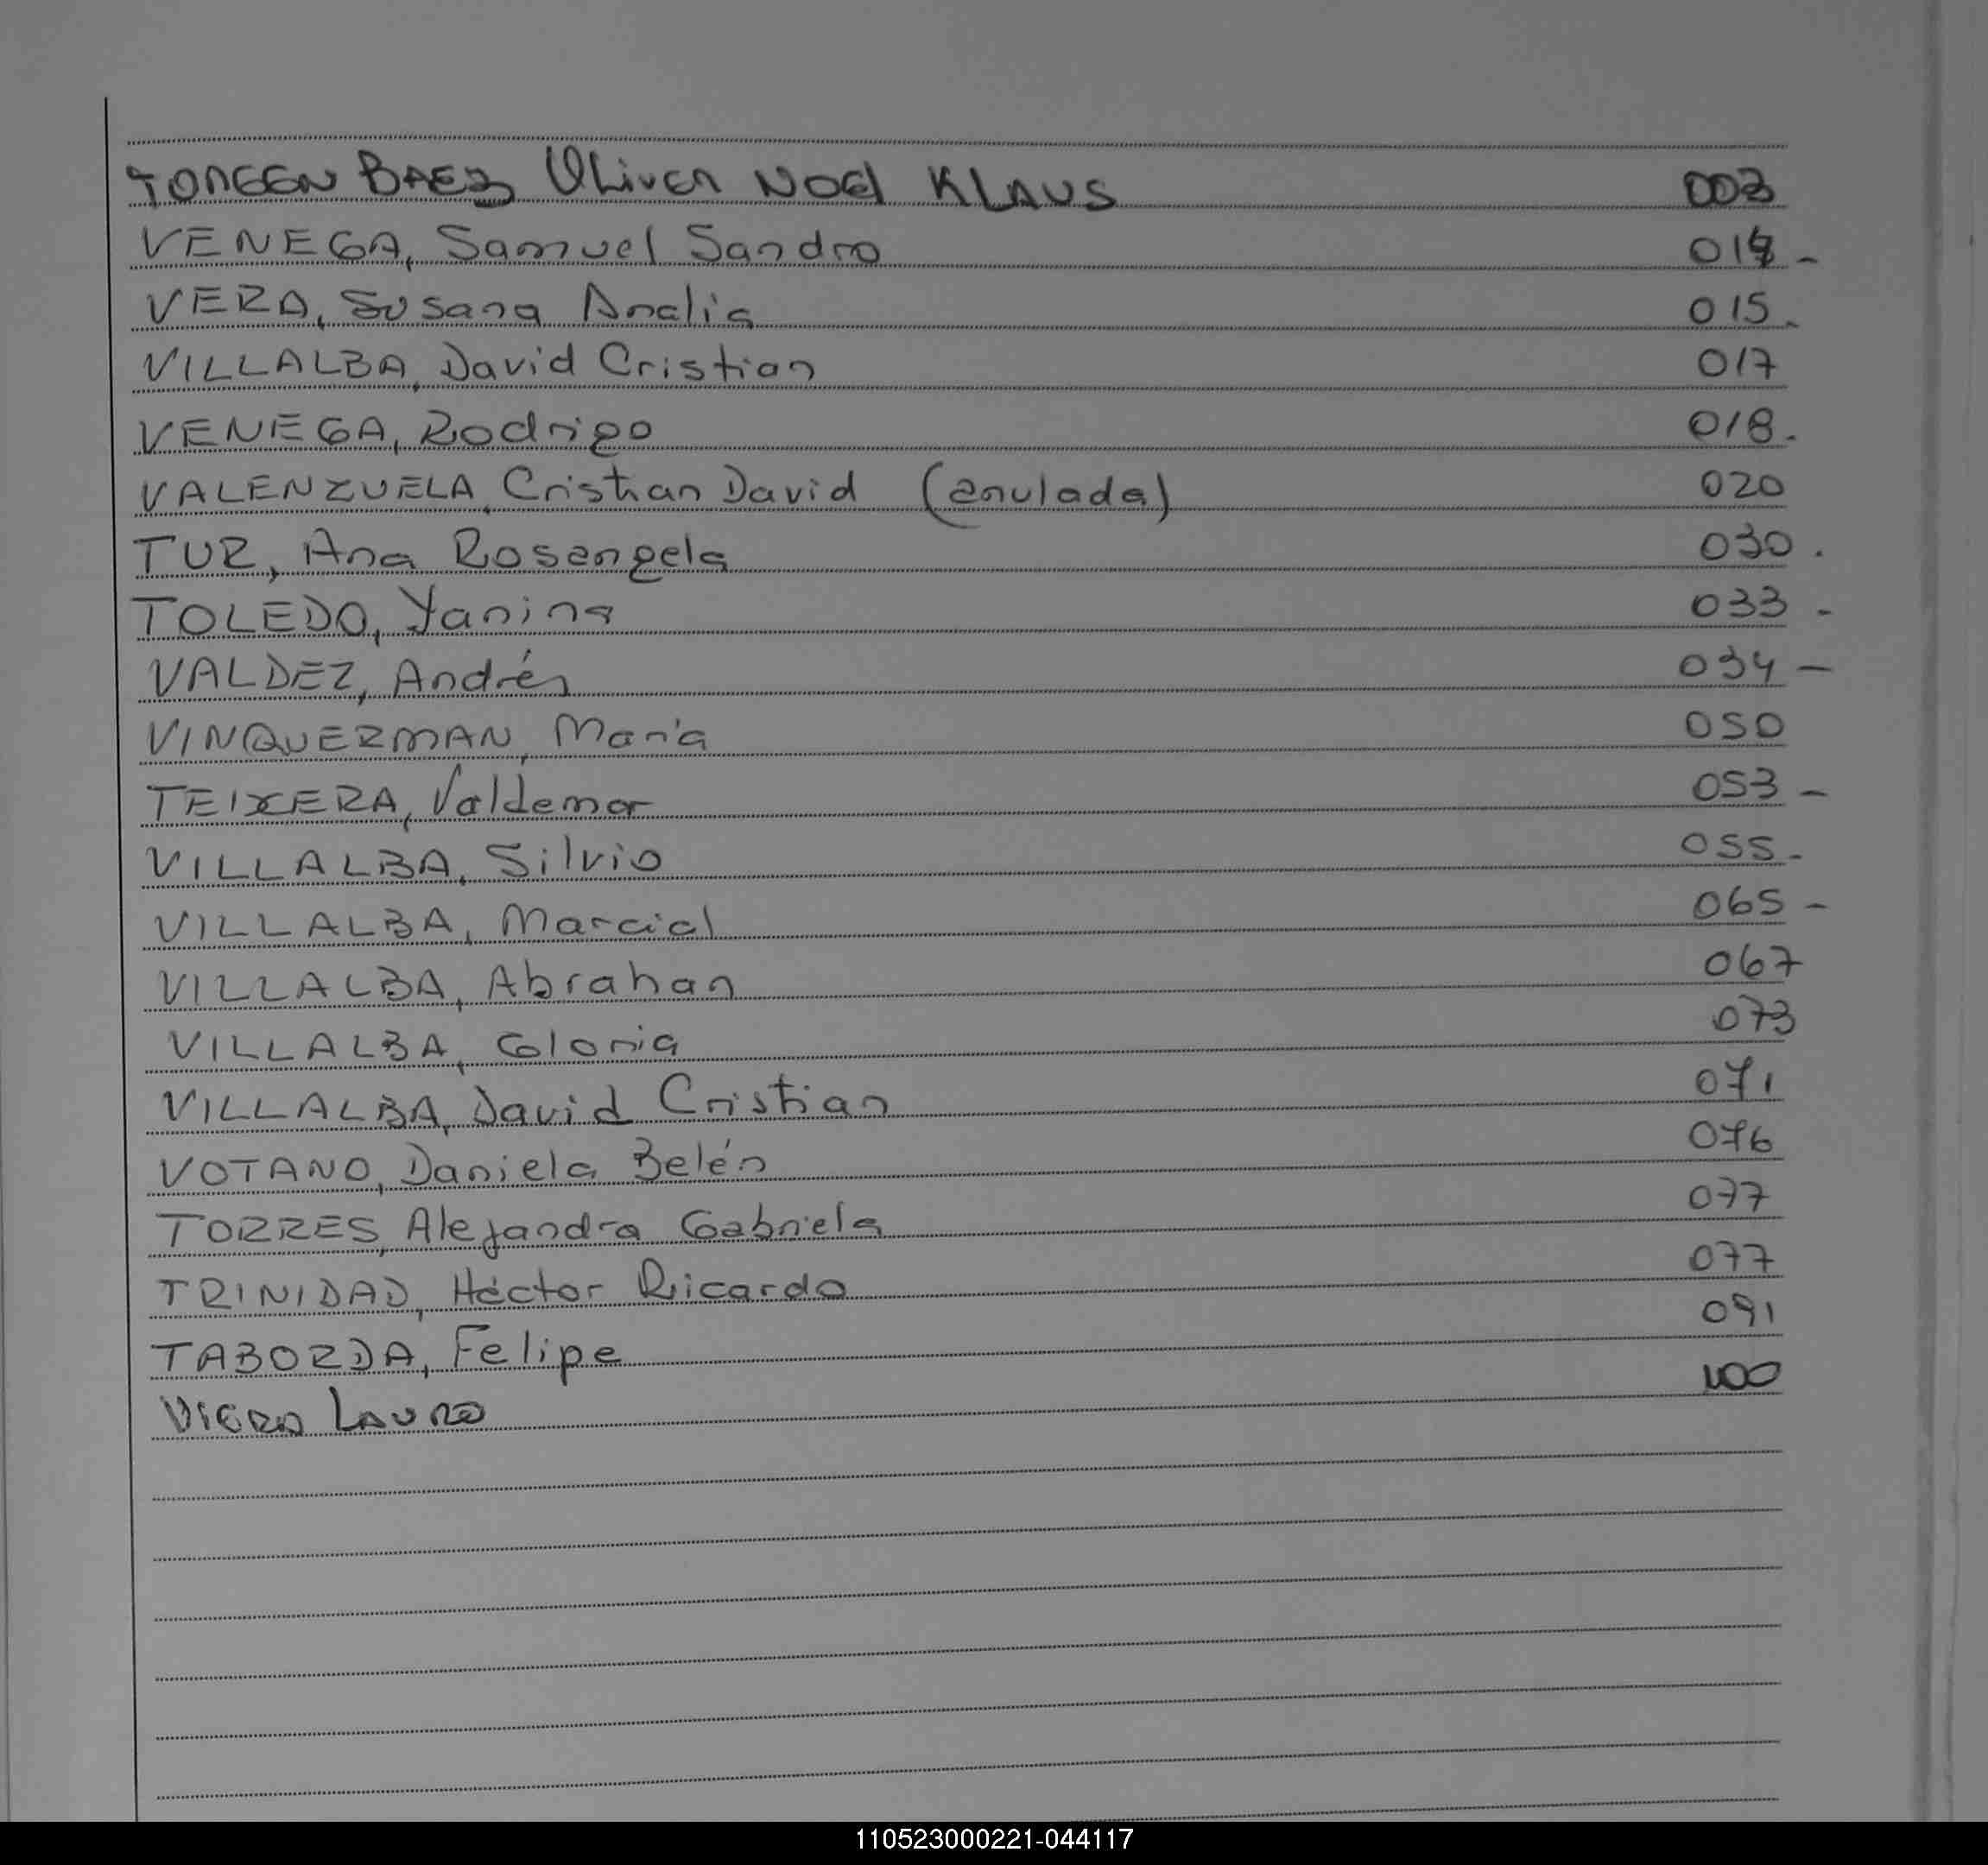 TORGEN BAEZ Oliver NOEl KLAUS 003
VENEGA, Samuel Sandro 014 -
VERA, Susana Analia 015.
VILLALBA, David Cristian 017
VENEGA, Rodrigo 018.
VALENZUELA, Cristian David (anulada) 020
TUR, Ana Rosangela 030.
TOLEDO, Yanina 033 -
VALDEZ, Andrés 034 -
VINQUERMAN, María 050
TEIXERA, Valdemar 053 -
VILLALBA, Silvio 055 -
VILLALBA, Marcial 065 -
VILLALBA, Abrahan 067
VILLALBA, Gloria 073
VILLALBA, David Cristian 071
VOTANO, Daniela Belén 076
TORRES, Alejandra Gabriela 077
TRINIDAD, Héctor Ricardo 077
TABORDA, Felipe 091
VIERA LAURO 100
110523000221-044117